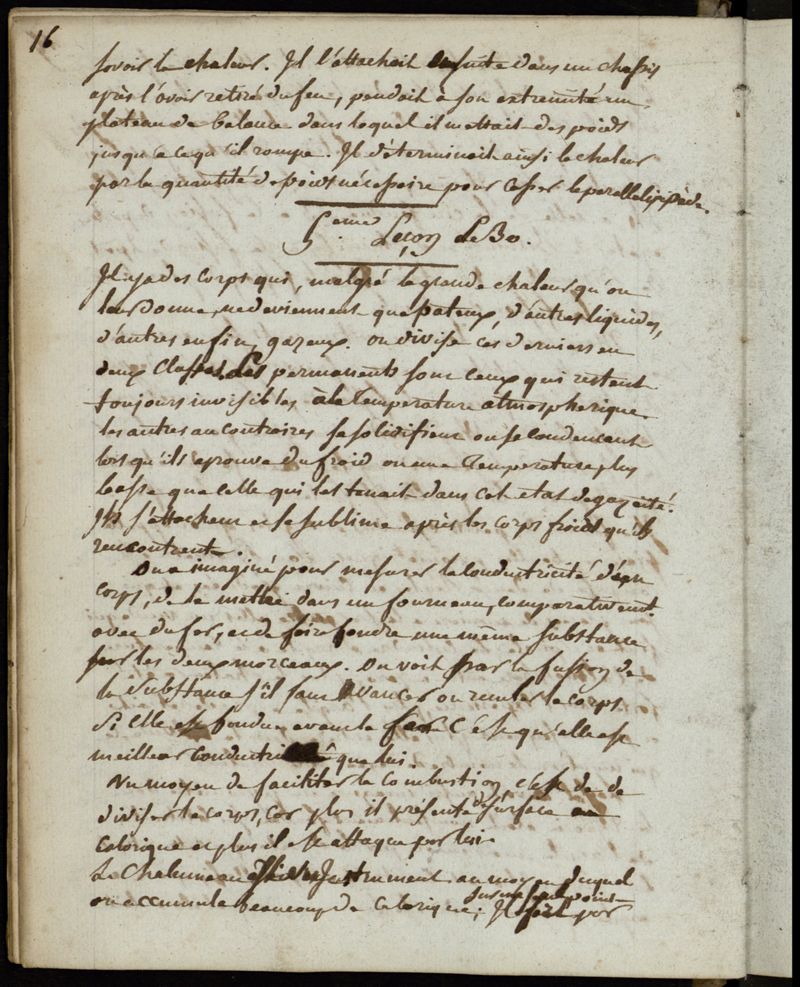 16
savoir la chaleur. Il l'attachait ensuite dans un chassis
après l'avoir retiré du feu, pendait à son extremité un
plateau de balance dans lequel il mettait des poids
jusqu'a ce qu'il rompe. Il déterminoit ainsi la chaleur
par la quantité de poids nécessaire pour casser le parallelipipède.
5.eme Leçon de Bo.
Il y a des corps qui, malgré la grande chaleur qu'on
leur donne, ne deviennent que pateux, d'autres liquides,
d'autres enfin, gazeux. on divise ces derniers en
deux Classes. Les permanents sont ceux qui restent
toujours invisibles à la Temperature atmospherique.
les autres au contraires se solidifient ou se condencent
lorsqu'ils eprouve du froid ou une Temperature plus
basse que celle qui les tenait dans cet etat de gazeité.
Ils s'attachent et se sublime après les corps froids qu'ils
rencontrent.
On a imaginé pour mesurer la conductricité d'un
corps, de le mettre dans un fourneau, comparativement
avec du fer, et de faire fondre une même substance
sur les deux morceaux. On voit par la fusion de
la substance s'il faut avancer ou reculer le corps
Si elle est fondue avant le fer C'est qu'elle est
meilleur conductri que lui.
Un moyen de faciliter la Combustion, c'est de de
diviser le corps, car plus il présente de surface au
Calorique et plus il est attaqué par lui.
Le Chalumeau est un Instrument au moyen duquel
on accumule beaucoup de calorique, sur un seul point
Il par